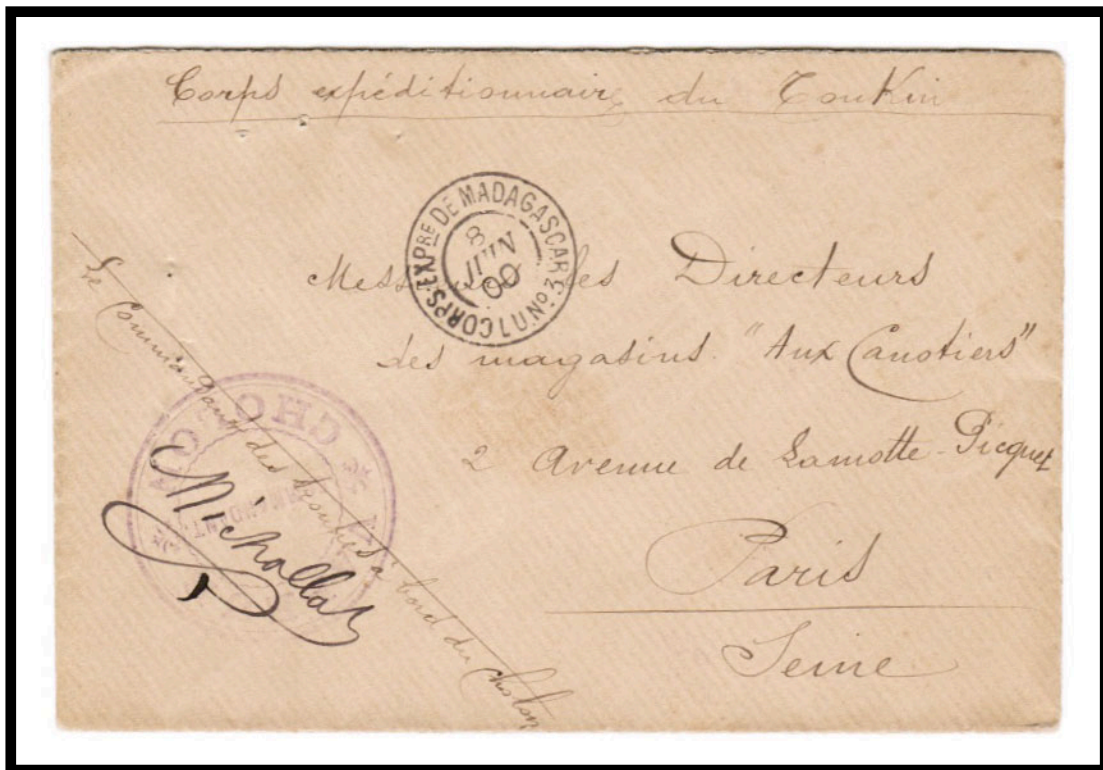 Corps expéditionnaire du Tonkin
CORPS EXPRE DE MADAGASCAR No. 3
8
JUIN
00
les Directeurs
des magasins "Aux Canotiers"
2 Avenue de Lamotte-Picquet
Paris
Seine
Le Commandant des troupes à bord du Cholon
CHOLON
Michollat